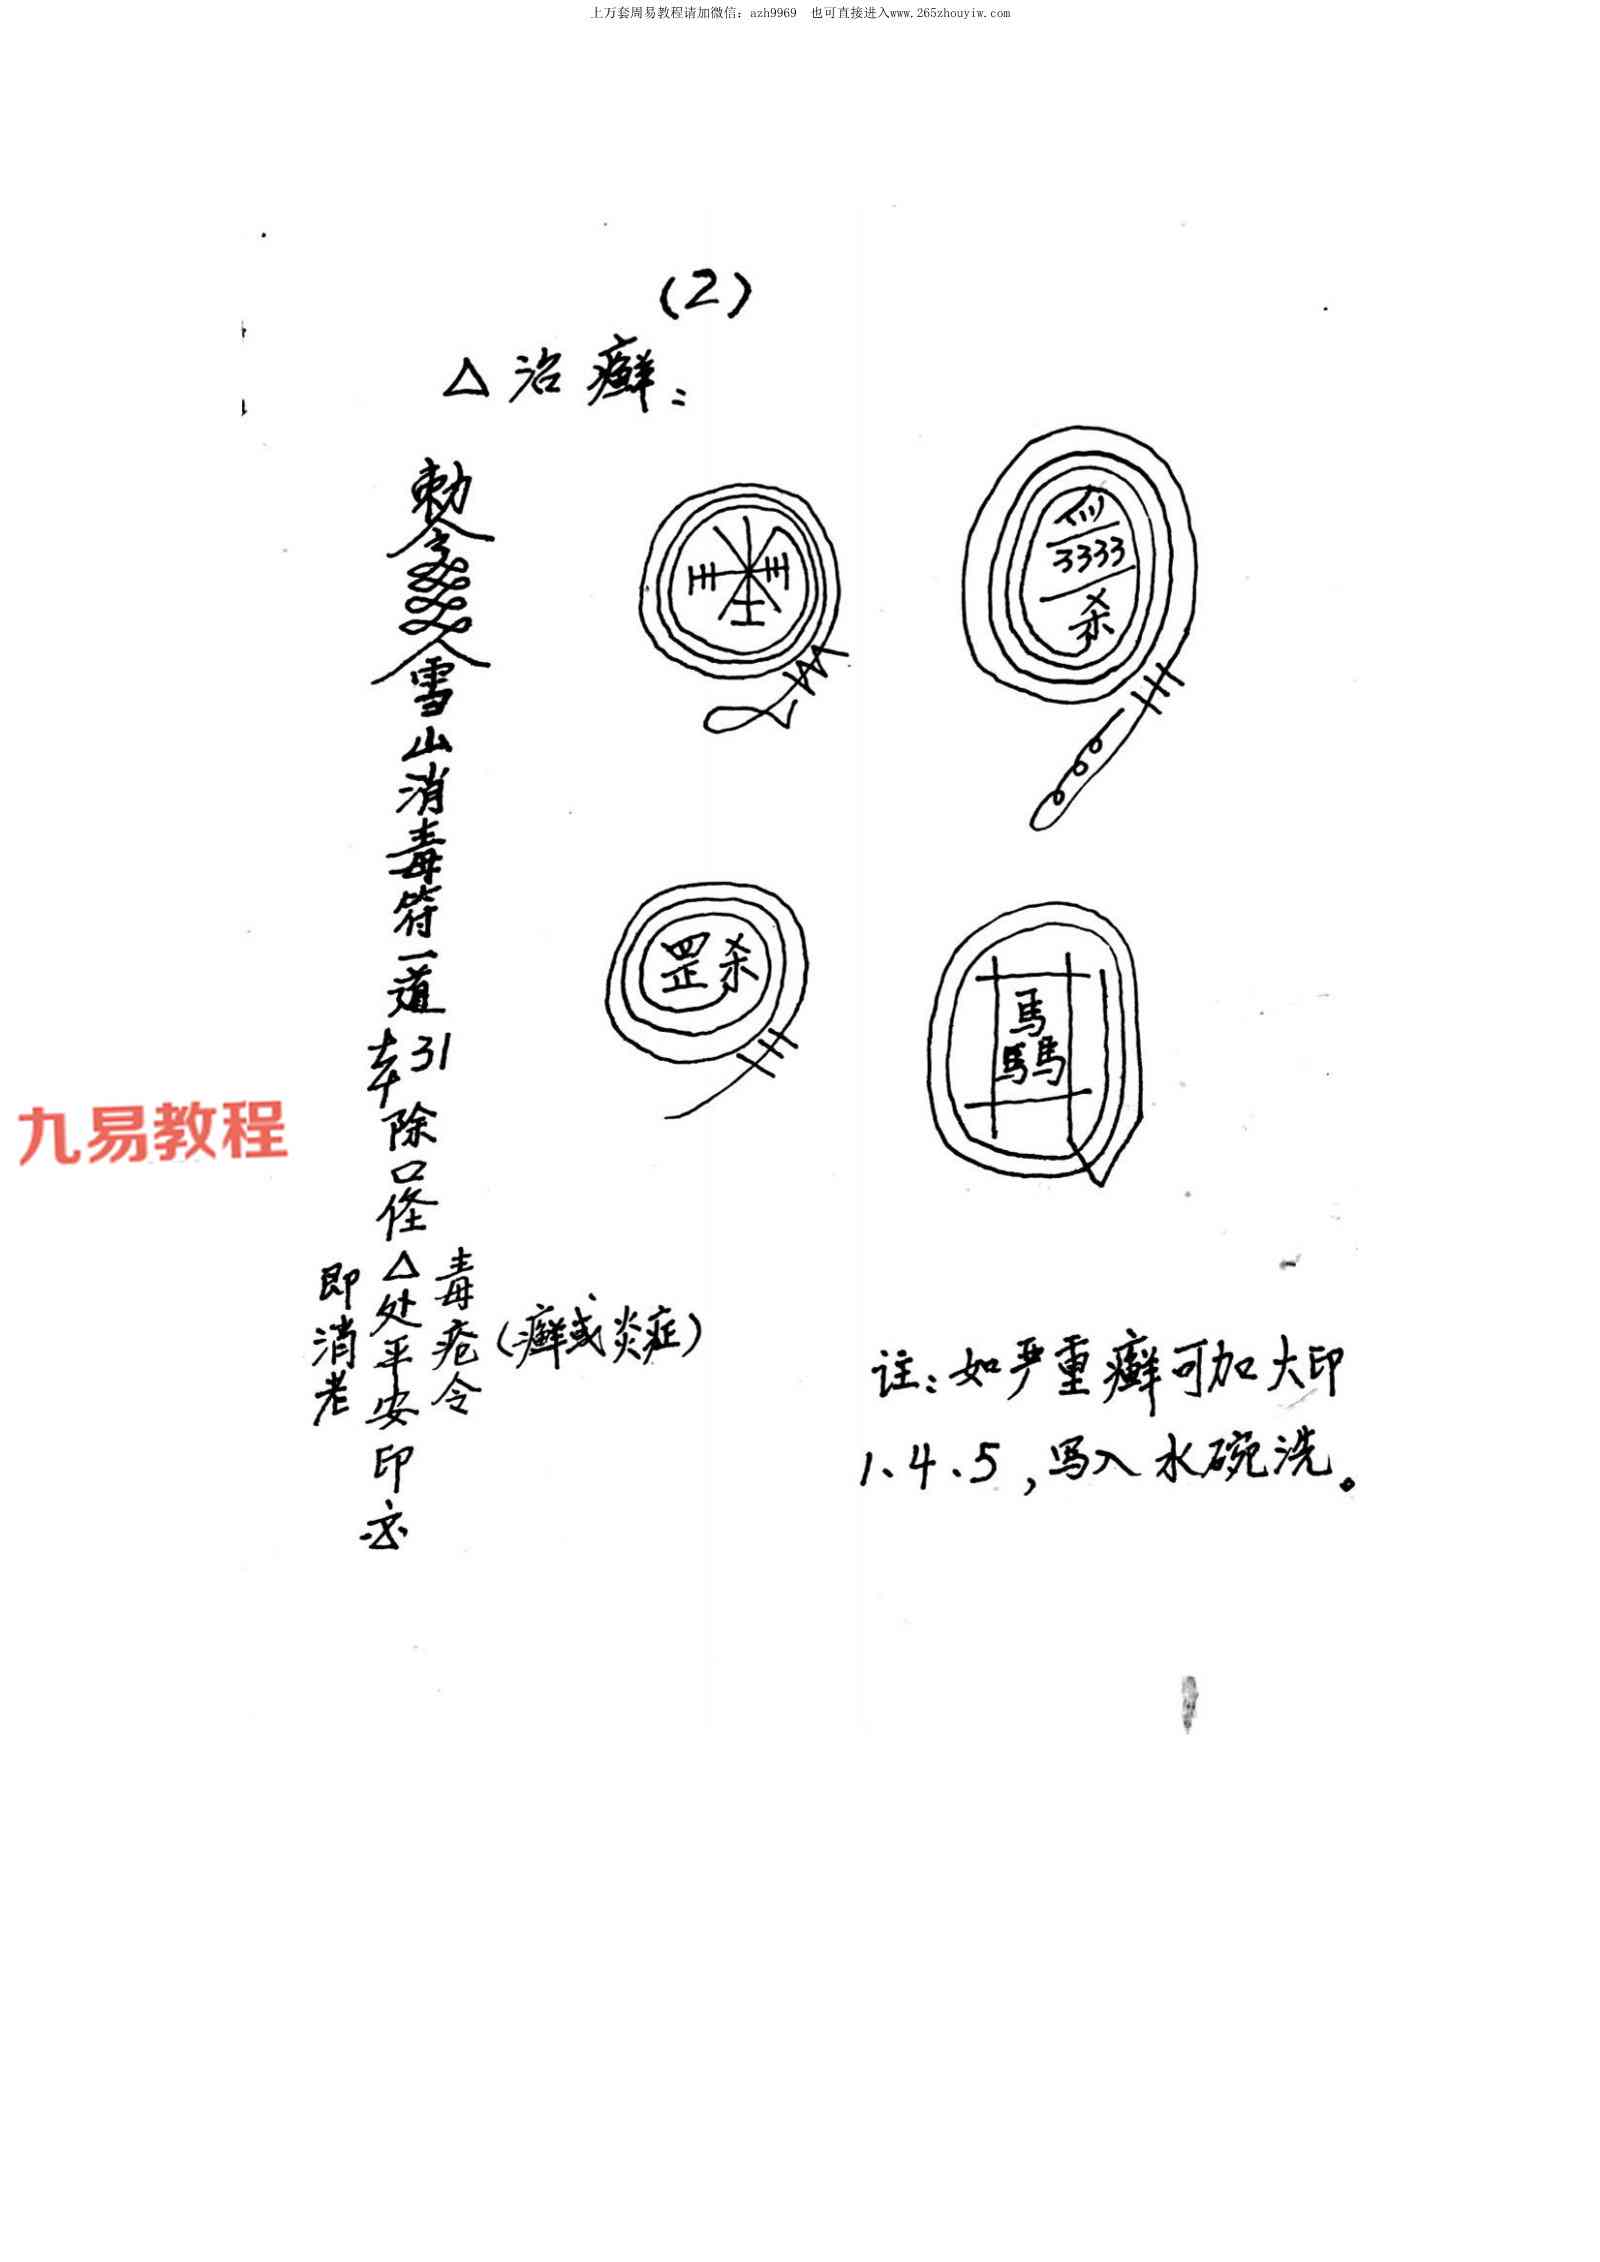 上万套周易教程请加微信：azh9969 也可直接进入www.265zhouyiw.com
(2)
△治癣：
勅令
雪山消毒符一道
车引
除口怪△处平安印
毒疮令
即消老
(癣或炎症)
3333
杀
罡杀
馬
馬馬
注：如严重癣可加大印
1、4、5，写入水碗洗。
九易教程